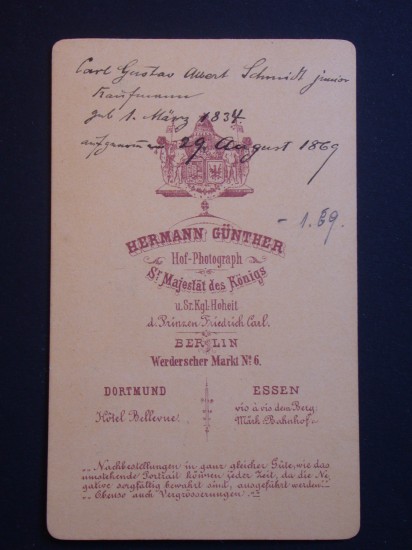 Carl Gustav Albert Schmidt junior
Kaufmann
geb 1. März 1834.
aufgenommen 29. August 1869
- 1. 69.
HERMANN GÜNTHER
Hof-Photograph
Sr. Majestät des Königs
u. Sr. Kgl. Hoheit
d. Prinzen Friedrich Carl.
BERLIN
Werderscher Markt No. 6.
DORTMUND
Hôtel Bellevue.
ESSEN
vis à vis dem Berg.
Märk Bahnhof.
„Nachbestellungen in ganz gleicher Güte, wie das
umstehende Portrait können jeder Zeit, da die Ne-
gative sorgfältig bewahrt sind, ausgeführt werden.
Ebenso auch Vergrösserungen.